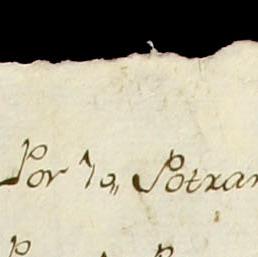 Por 7a,, Potran